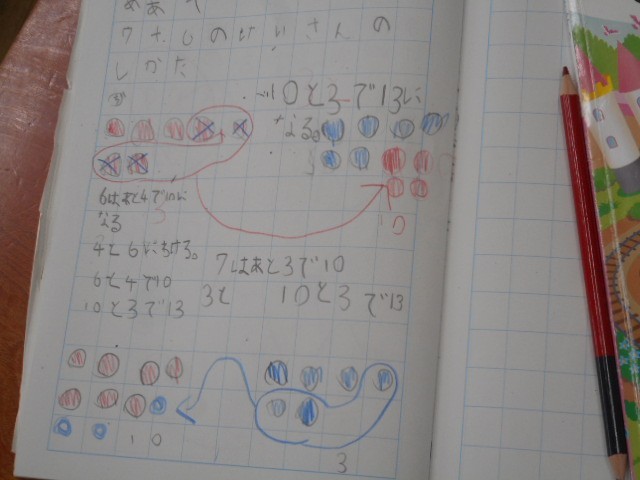 めあて
たしざんのけいさんの
しかた
10と3で13に
なる。
6はあと4で10に
なる
3
10
4と6にわける。
7はあと3で10
6と4で10
3と
10と3で13
10と3で13
10
3